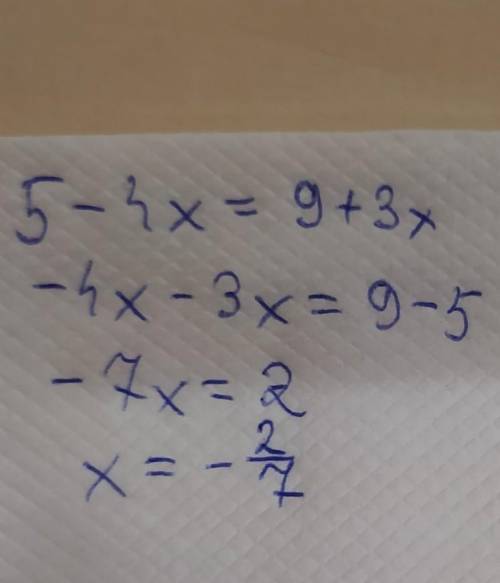 5 - 4x = 9 + 3x
-4x - 3x = 9 - 5
-7x = 2
x = -2/7